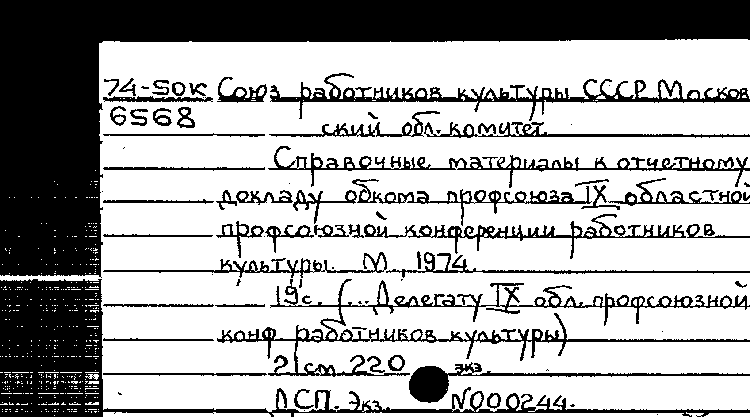 74-50к Союз работников культуры СССР. Москов
6568
ский обл. комитет.
Справочные материалы к отчетному
докладу обкома профсоюза IX областной
профсоюзной конференции работников
культуры. М., 1974.
19с. (... Делегату IX обл. профсоюзной
конф. работников культуры)
21см. 220 экз.
ДСП. Экз. N000244.